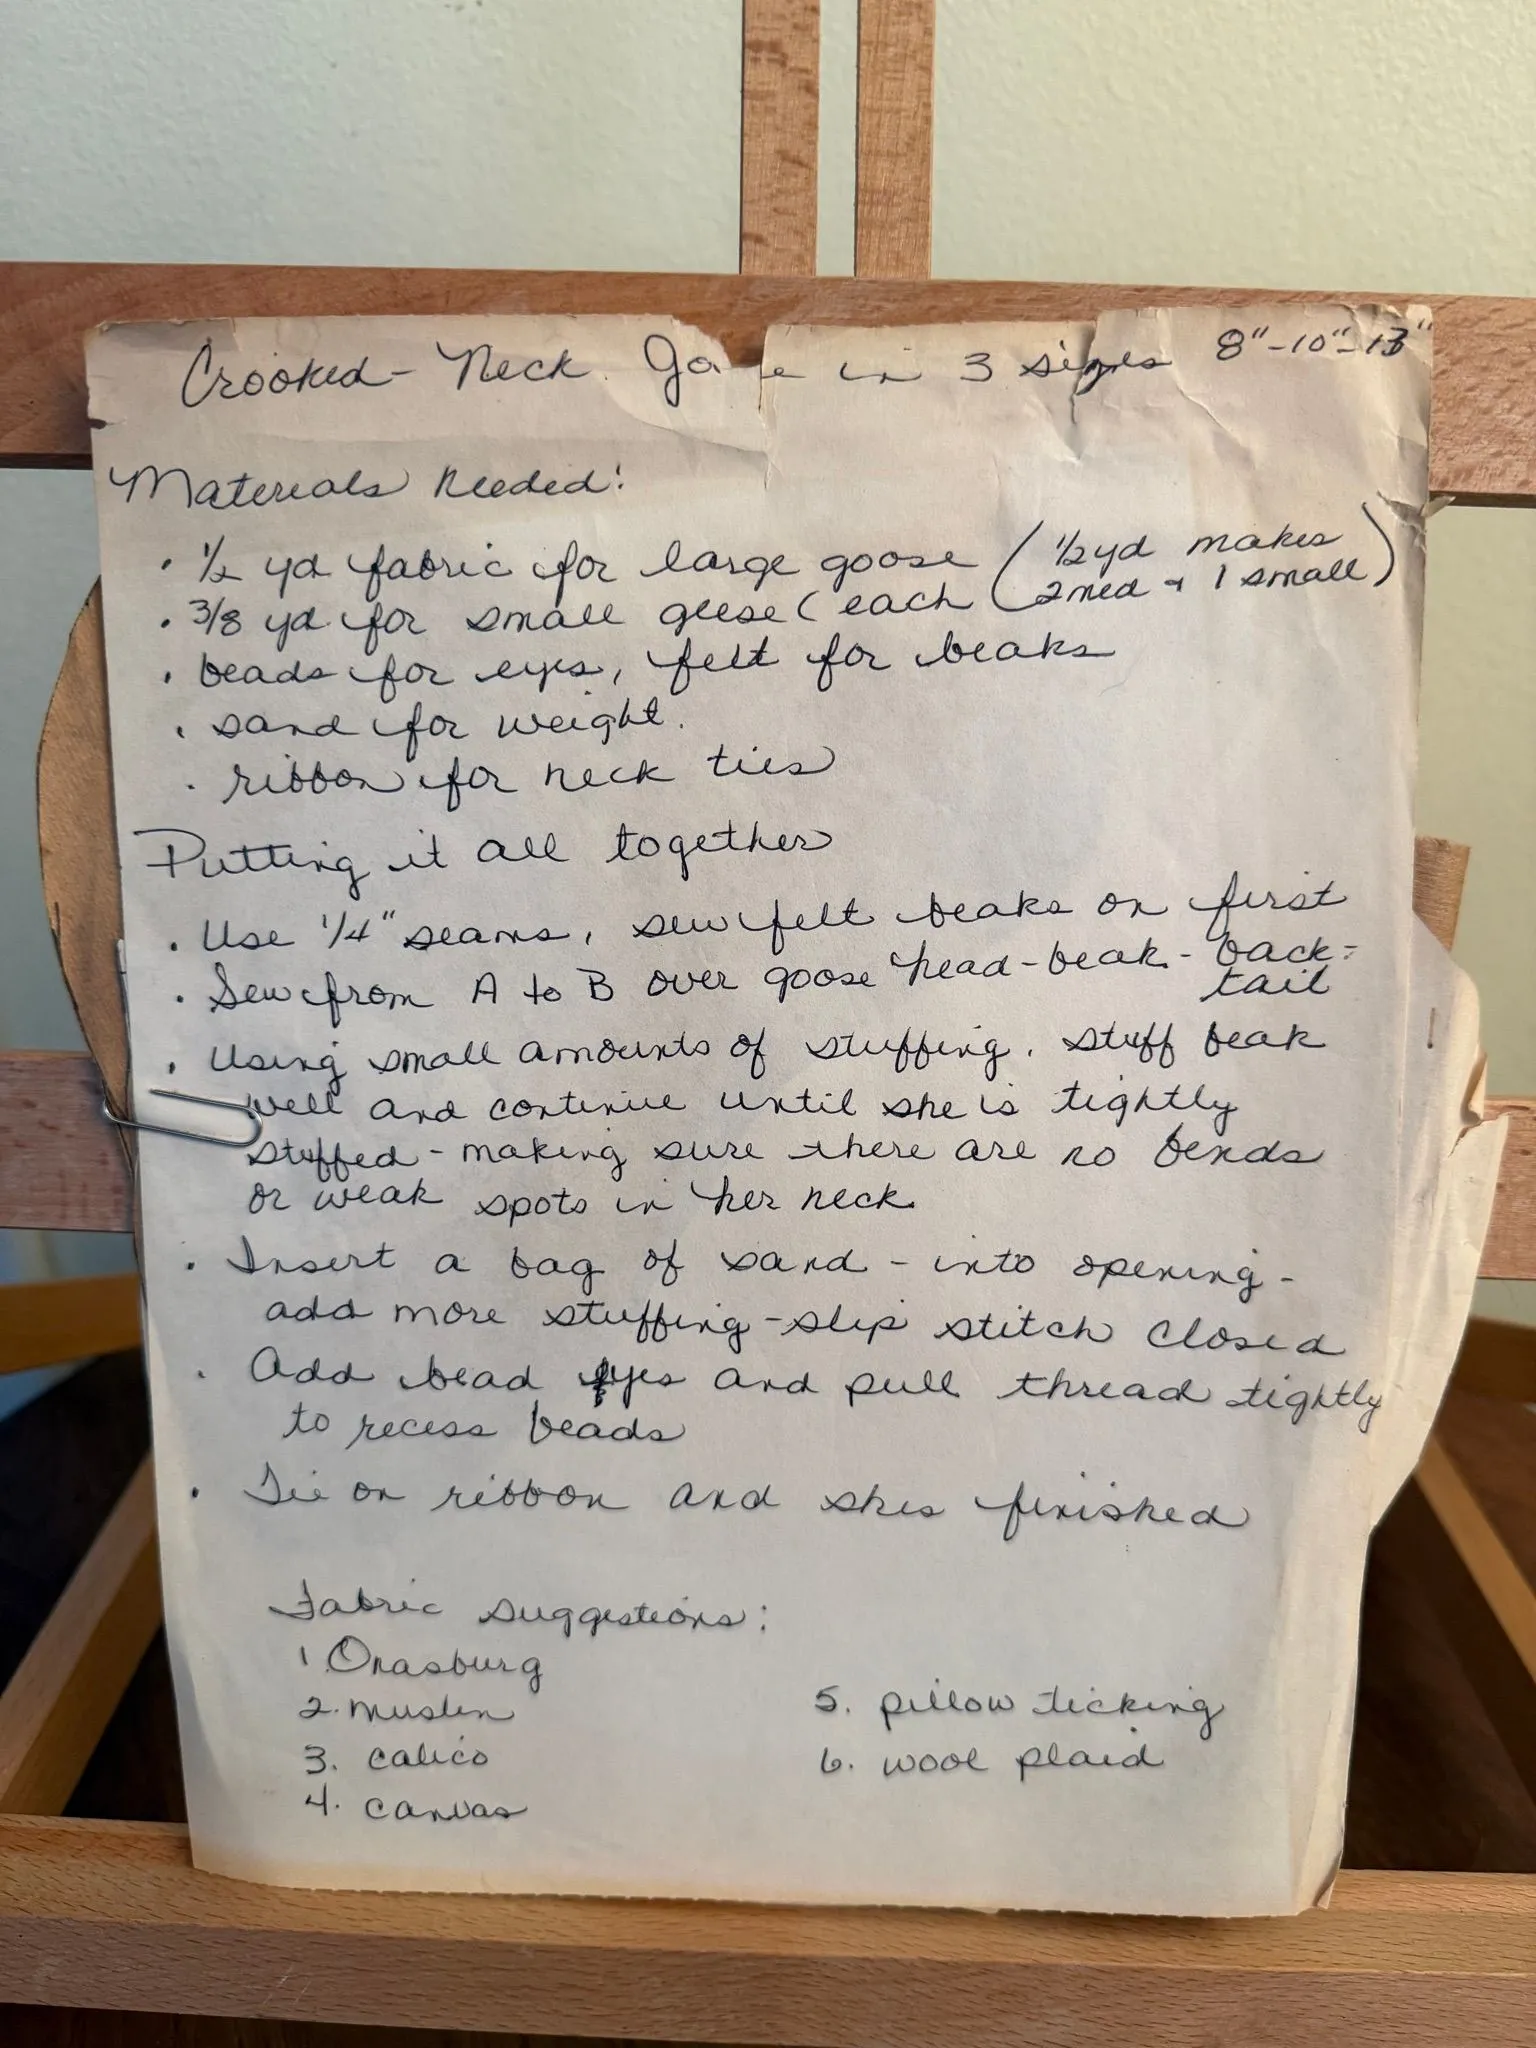 Crooked-Neck Go e in 3 sizes 8"-10"-13"
Materials needed:
· 1/2 yd fabric for large goose (1/2 yd makes
2 med + 1 small)
· 3/8 yd for small geese (each
· beads for eyes, felt for beaks
· sand for weight.
· ribbon for neck ties
Putting it all together
· Use 1/4" seams, sew felt beaks on first
· Sew from A to B over goose head-beak-back-
tail
· Using small amounts of stuffing. stuff beak
well and continue until she is tightly
stuffed - making sure there are no bends
or weak spots in her neck.
· Insert a bag of sand - into opening -
add more stuffing - slip stitch closed
· Add bead eyes and pull thread tightly
to recess beads
· Tie on ribbon and shes finished
Fabric suggestions:
1 Onasburg
2. muslin
3. calico
4. canvas
5. pillow ticking
6. wool plaid